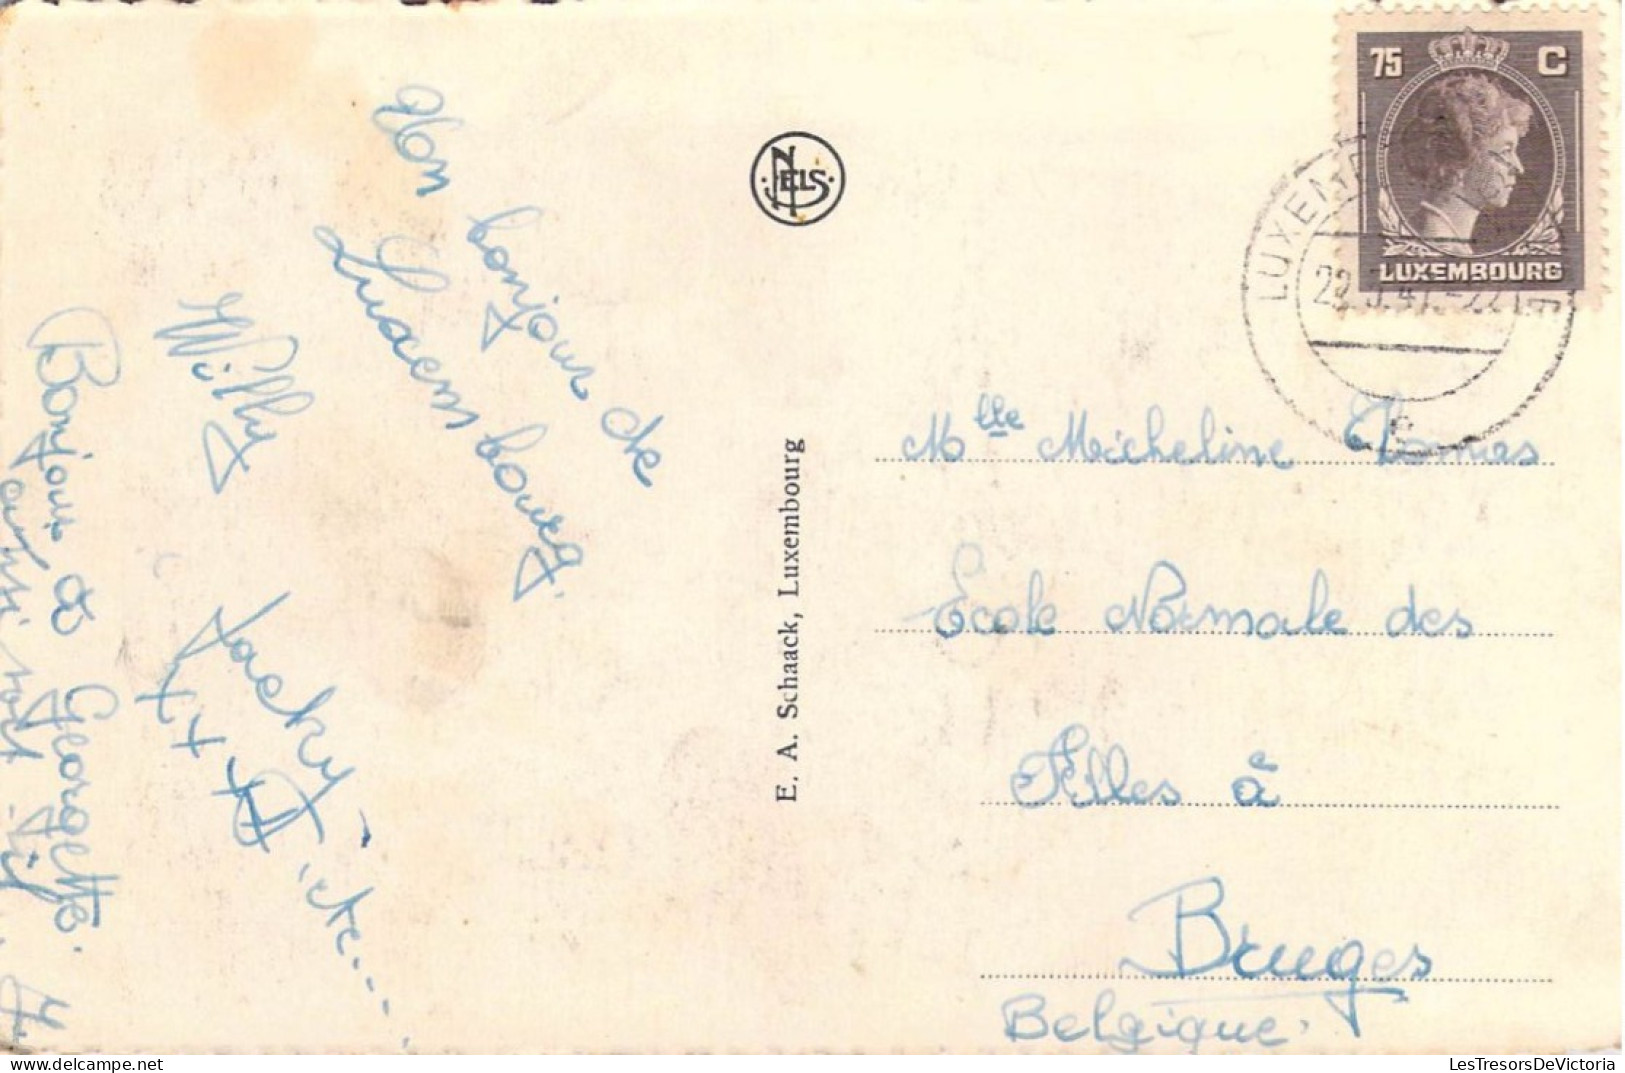 Mon bonjour de
Luxembourg.
Willy
Jacky
+ + +
Bonjour de Georgette.
aussi
NELS
E. A. Schaack, Luxembourg
75 C
LUXEMBOURG
LUXEMB
Mlle Micheline
École Normale des
Filles à
Bruges
Belgique.
LesTresorsDeVictoria